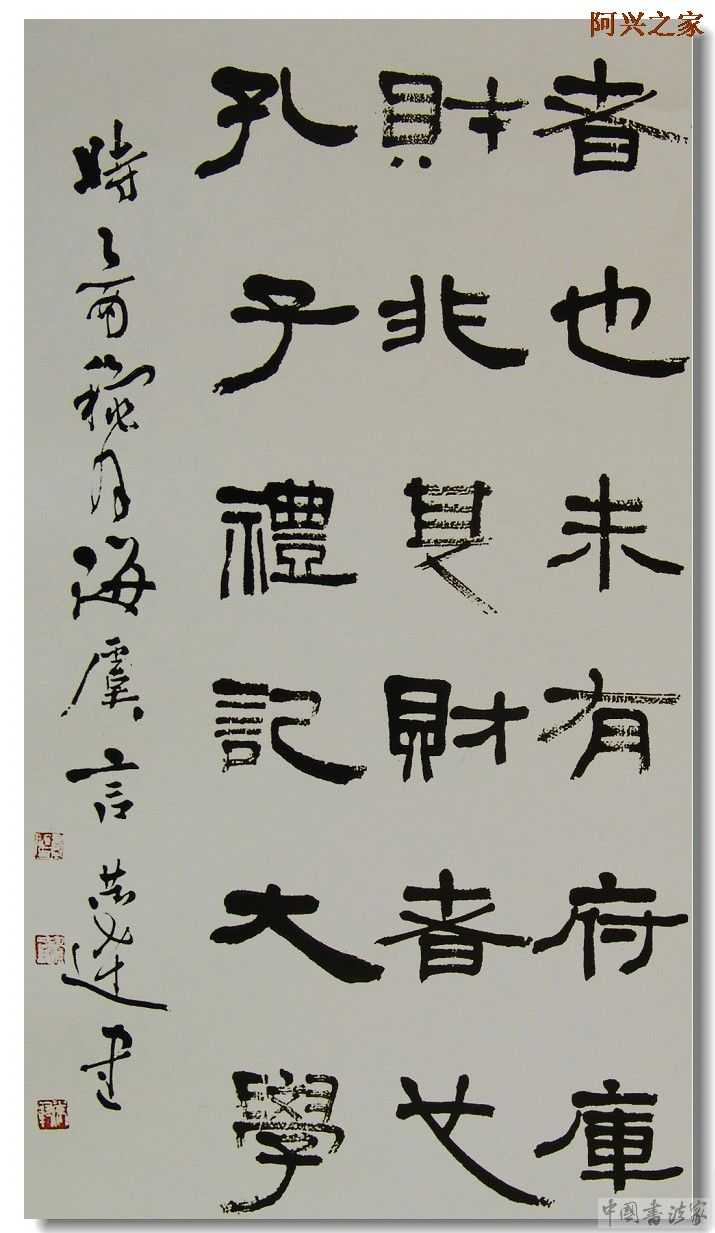 阿兴之家
者也未有府庫
財非其財者也
孔子禮記大學
時乙酉龝月海虞言恭達書
中國書法家